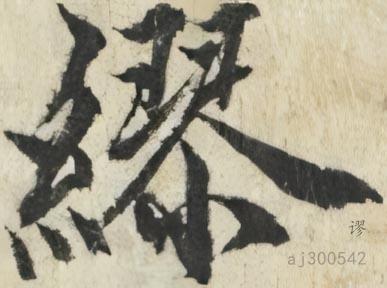 繆
谬
aj300542